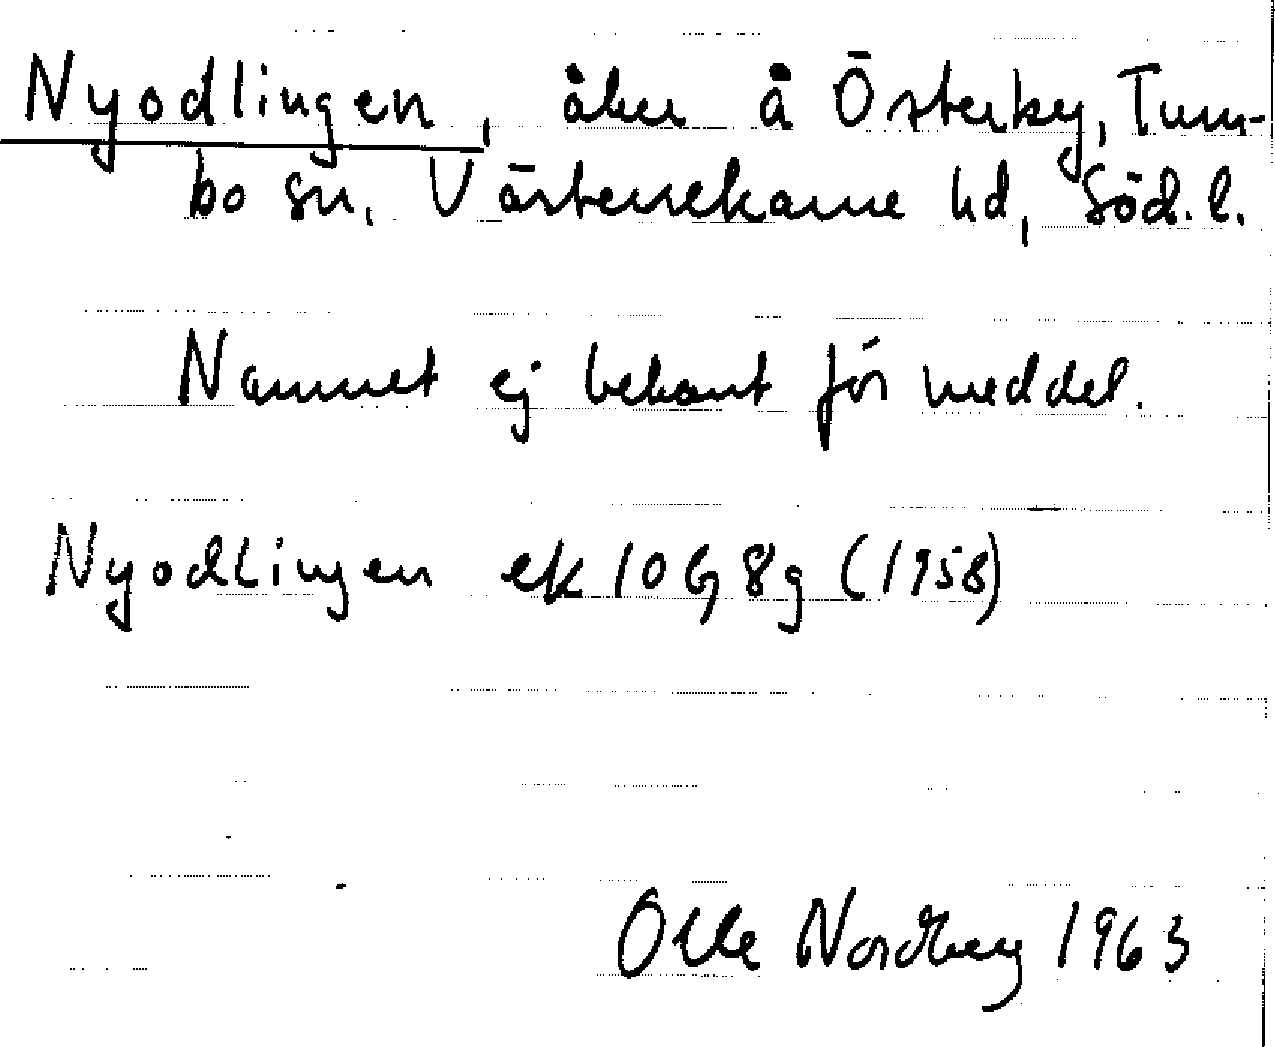 Nyodlingen, åker å Österby, Tum-
bo sn, Västerrekarne hd, Söd. l.
Namnet ej bekant för meddel.
Nyodlingen ek 10G, 8g (1958)
Olle Nordberg 1963